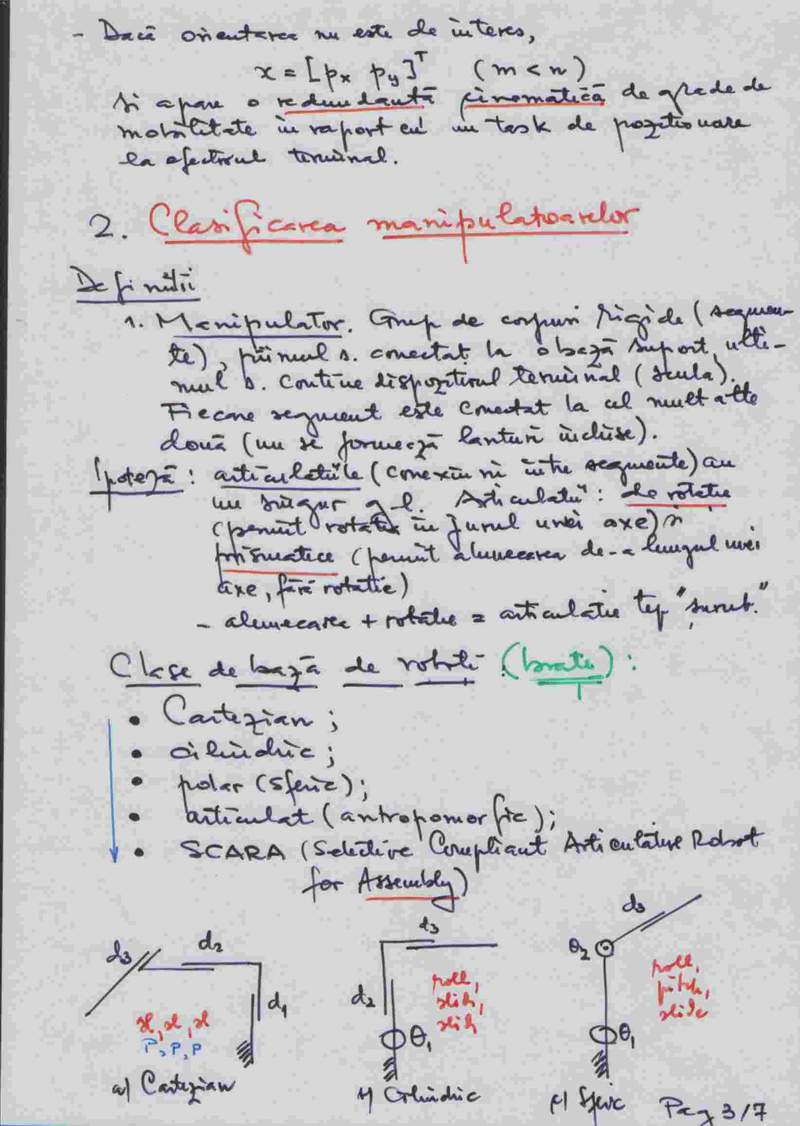 - Dacă orientarea nu este de interes,
x = [px py]^T (m < n)
și apare o redundanță cinematică de grade de
mobilitate în raport cu un task de poziționare
la efectorul terminal.
2. Clasificarea manipulatoarelor
Definiții
1. Manipulator. Grup de corpuri rigide (segmen-
te), primul s. conectat la o bază suport, ulti-
mul s. conține dispozitivul terminal (scula).
Fiecare segment este conectat la cel mult alte
două (nu se formează lanțuri închise).
Ipoteză: articulațiile (conexiuni între segmente) au
un singur g.l. Articulații: de rotație
(permit rotația în jurul unei axe) și
prismatice (permit alunecarea de-a lungul unei
axe, fără rotație)
- alunecarea + rotație = articulație tip "șurub."
Clase de bază de roboți (brațe):
• Cartezian;
• cilindric;
• polar (sferic);
• articulat (antropomorfic);
• SCARA (Selective Compliant Articulative Robot
for Assembly)
d3 d2 d1
sl, sl, sl
P, P, P
a) Cartezian
d3
d2
roll,
slide,
slide
θ1
b) Cilindric
d3
θ2
roll,
pitch,
slide
θ1
c) Sferic
Pag 3/7